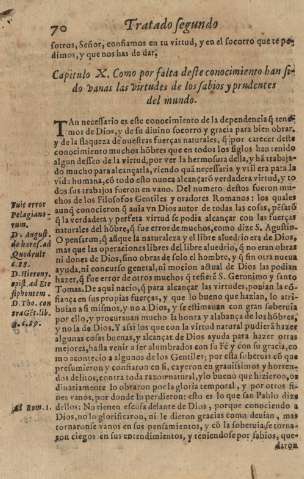 70 Tratado segundo
sotros, Señor, confiamos en tu virtud, y en el socorro que te pe-
dimos, y que nos has de dar.
Capitulo X. Como por falta deste conocimiento han si-
do vanas las virtudes de los sabios y prudentes
del mundo.
TAn necessario es este conocimiento de la dependencia q̃ tene-
mos de Dios, y de su diuino socorro y gracia para bien obrar,
y de la flaqueza de nuestras fuerças naturales, q̃ por carecer deste
conocimiento muchos hõbres que en todos los siglos han tenido
algun desseo de la virtud, por ver la hermosura della, y hã trabaja-
do mucho para alcançarla, viendo quã necessaria y vtil era para la
vida humana, cõ todo esto nunca alcançarõ verdadera virtud, y to-
dos sus trabajos fueron en vano. Del numero destos fueron mu-
chos de los Filosofos Gentiles y oradores Romanos: los quales
aunq̃ conocieron q̃ auia vn Dios autor de todas las cosas, pẽsarõ
q̃ la verdadera y perfeta virtud se podia alcançar con las fuerças
naturales del hõbre, q̃ fue error de muchos, como dize S. Agustin.
O pensarõ, q̃ assi
que la naturaleza y el libre aluedrio era de Dios,
mas que las operaciones libres del libre aluedrio, q̃ no eran obras
ni dones de Dios, sino obras de solo el hombre, y q̃ sin otra nueua
ayuda, ni concurso general, ni mocion actual de Dios las podian
hazer, q̃ fue error de otros muchos q̃ refierẽ S. Geronimo y santo
Tomas. De aqui nacio, q̃ para alcançar las virtudes, ponian la cõ-
fiança en sus propias fuerças, y lo que bueno que hazian, lo atri-
buian a si mismos, y no a Dios, y se estimauan con gran soberuia
por ello, y procurauan mucho la honra y alabança de los hõbres,
y no la de Dios. Y assi los que con la virtud natural pudierã hazer
algunas cosas buenas, y alcançar de Dios ayuda para hazer otras
mejores, hasta venir a ser alumbrados con la Fè y con su gracia, co
mo acontecio a algunos de los Gentiles; por esta soberuia cõ que
presumieron y confiaron en si, cayeron en grauissimos y horren-
dos delitos, contra toda razon natural, y lo bueno que hizieron, or
dinariamente lo obraron por la gloria temporal, y por otros fi-
nes vanos, por donde lo perdieron: esto es lo que san Pablo dize
dellos: No tienen escusa delante de Dios, porque conociendo a
Dios, no lo glorificaron, ni le dieron gracias como deuian, mas
tornaronse vanos en sus pensamientos, y cõ la soberuia se torna-
ron ciegos en sus entendimientos, y teniendose por sabios, que-
daron
Fuit error
Pelagiano-
rum.
D. August.
de hæres. ad
Quoduult
c. 88.
D. Hierony.
epist. ad
Ctesiphontem.
D. Tho. cõ
tra Gẽt. lib.
3. c. 89.
Ad Rom. 1.